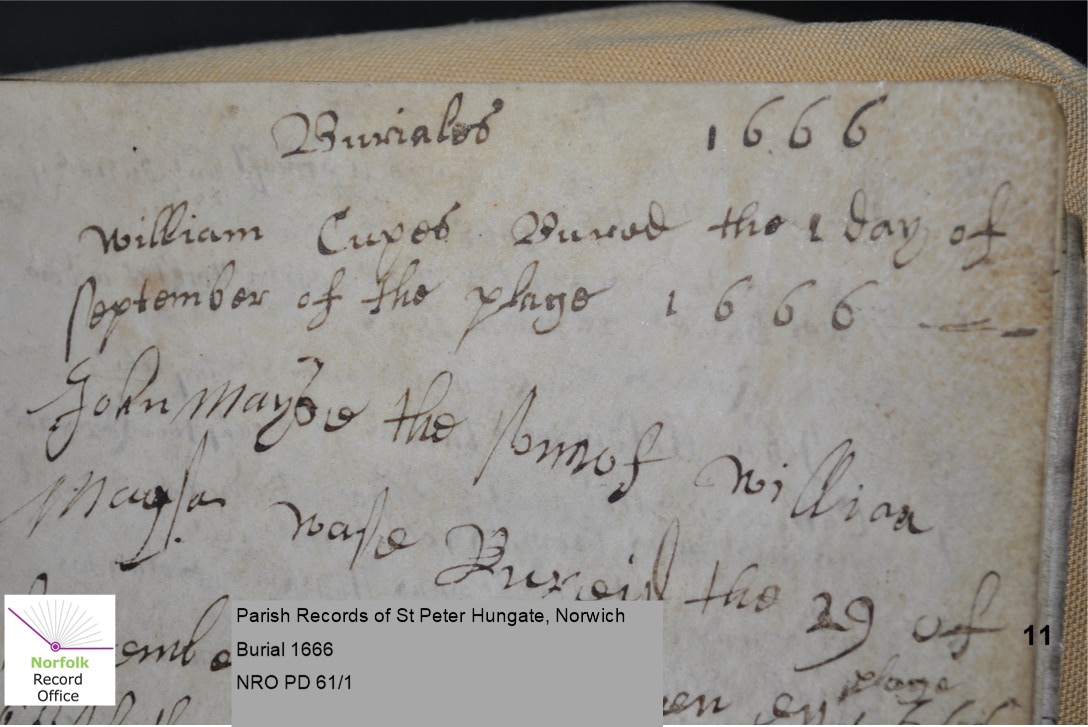 Buriales 1666
William Cupes Bured the 1 day of
september of the plage 1666
John Mayse the sonn of William
Maysa wase Bureid the 29 of
embe
plage
en
Norfolk
Record
Office
Parish Records of St Peter Hungate, Norwich
Burial 1666
NRO PD 61/1
11